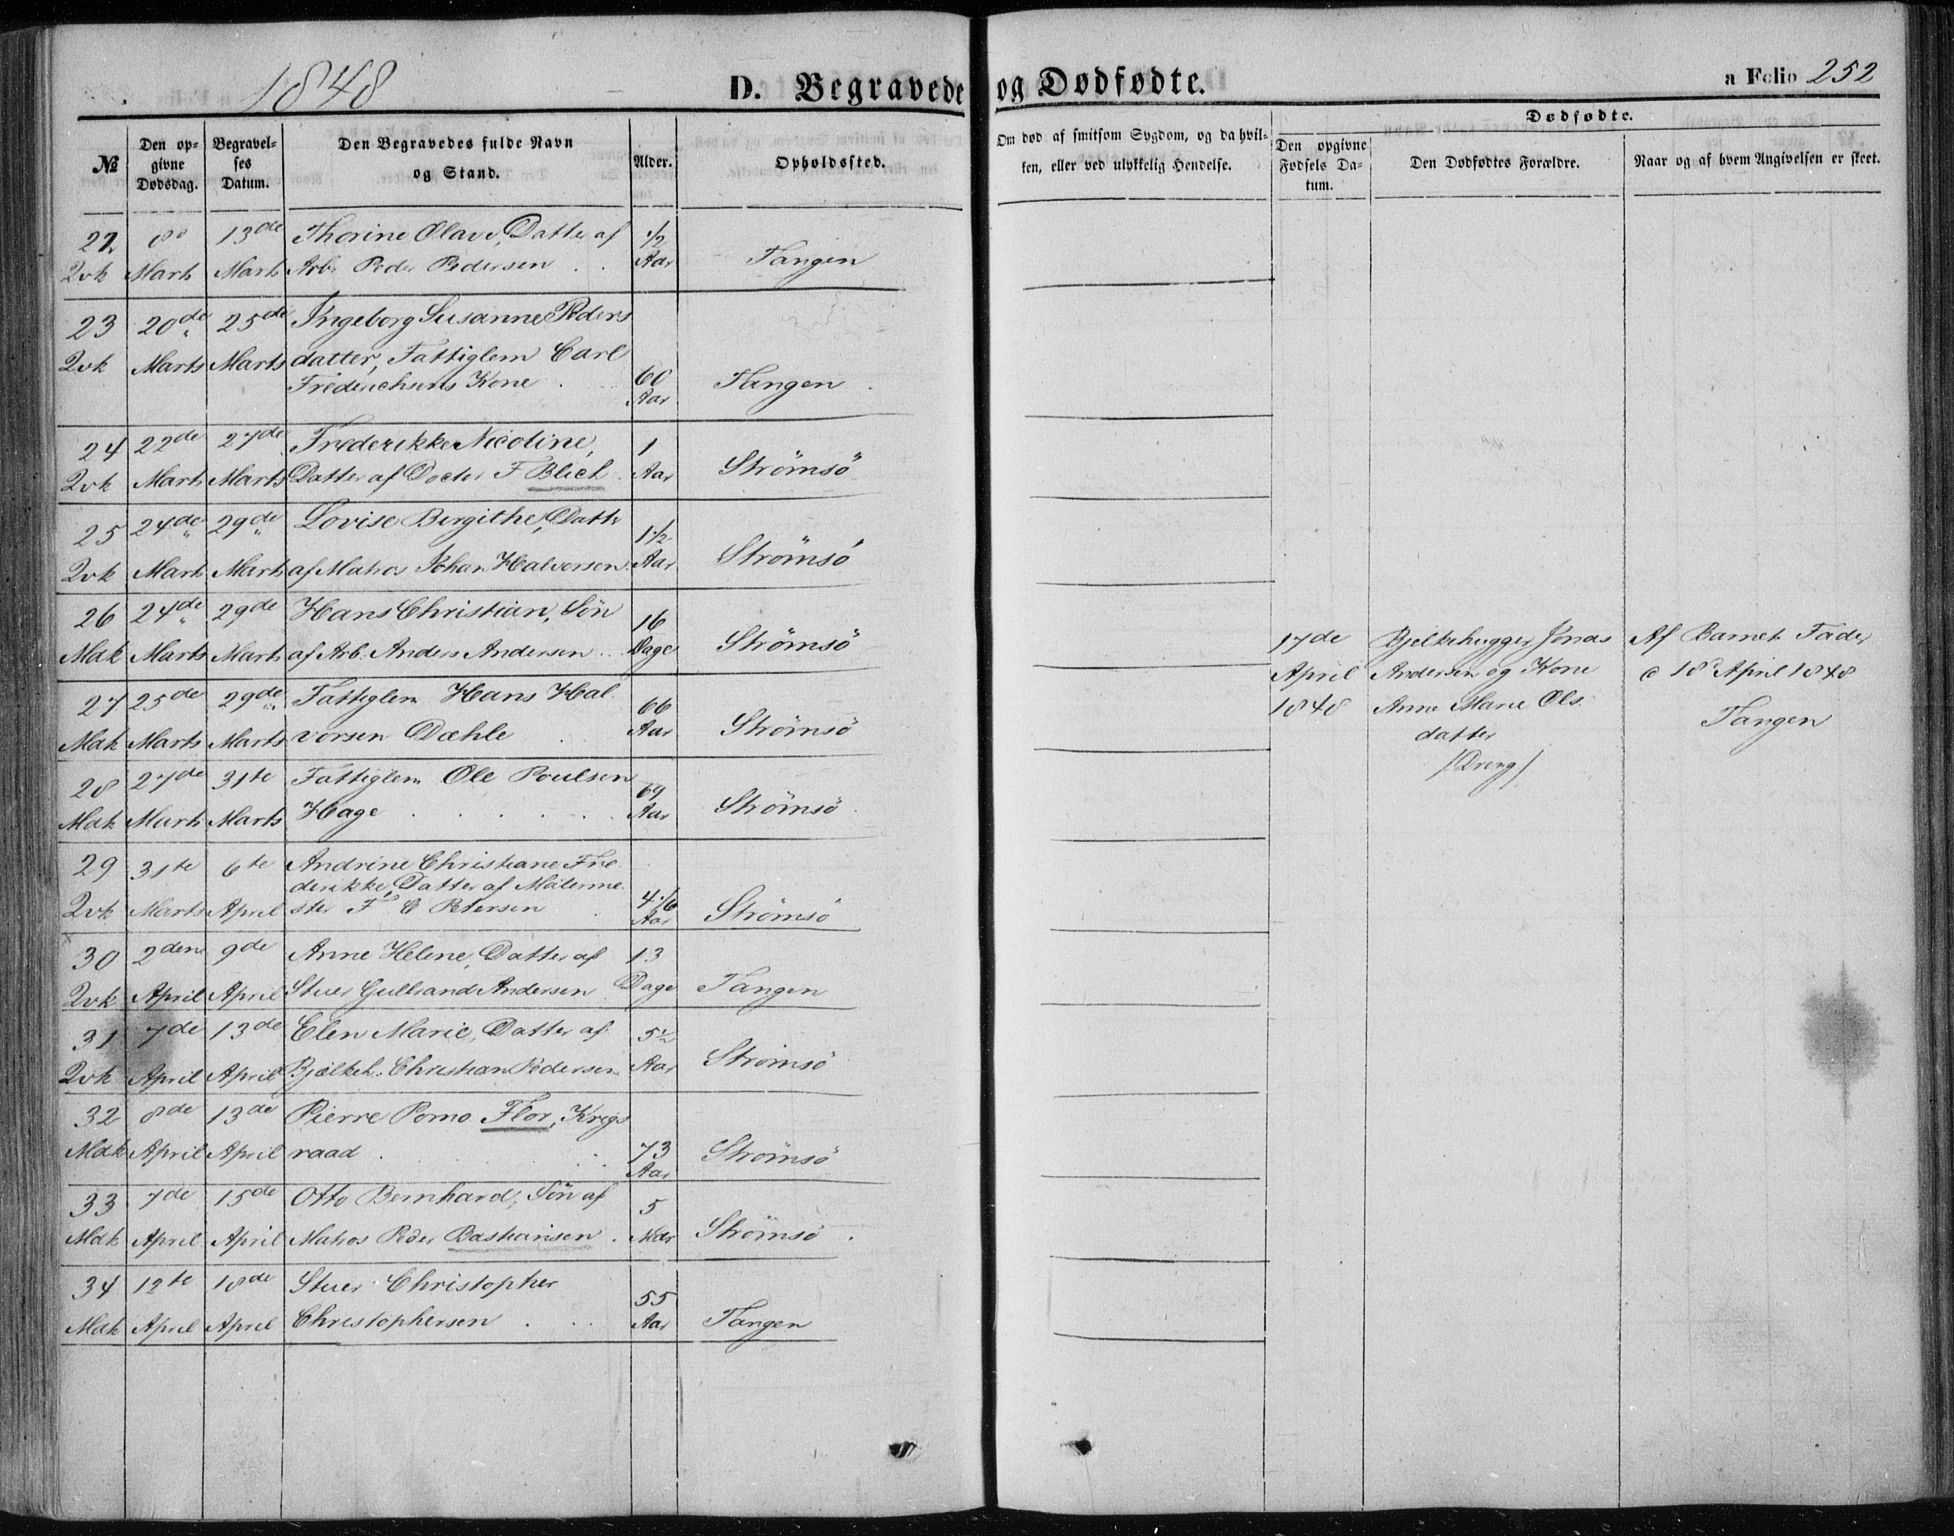 1848
D. Begravede og Dødfødte.
a Folio 252
№
Den opgivne Dødsdag.
Begravelses Datum.
Den Begravedes fulde Navn og Stand.
Alder.
Opholdssted.
Om død af smitsom Sygdom, og da hvilken, eller ved ulykkelig Hendelse.
Dødfødte.
Den opgivne Fødsels Datum.
Den Dødfødtes Forældre.
Naar og af hvem Angivelsen er skeet.
22. 8de 13de Thorine Olave, Datter af ½
Qvk Marts Marts Arb. Peder Pedersen Aar Tangen
23 20de 25de Ingeborg Susanne Peders
Qvk Marts Marts datter, Fattiglem Carl
Frederichsens Kone 60 Aar Tangen
24 22de 27de Frederikke Nicoline, 1
Qvk Marts Marts Datter af Doctor F Blich Aar Strömsö
25 24de 29de Lovise Birgithe, Datter 1½
Qvk Marts Marts af Matros Johan Halvorsen Aar Strömsö
26 24de 29de Hans Christian, Sön 16
Mdk Marts Marts af Arb. Anders Andersen Dage Strömsö
27 25de 29de Fattiglem Hans Hal 66
Mdk Marts Marts vorsen Dæhle Aar Strömsö
28 27de 31te Fattiglem Ole Poulsen 69
Mdk Marts Marts Hage Aar Strömsö
29 31te 6te Andrine Christiane Fre
derikke, Datter af Målerme
Qvk Marts April ster F C Petersen 4 1/6 Aar Strömsö
30 2den 9de Anne Helene, Datter af 13
Qvk April April Stuer Gulbrand Andersen Dage Tangen
31 7de 13de Elen Marie, Datter af 5½
Qvk April April Bjælkeh. Christian Pedersen Aar Strömsö
32 8de 13de Pierre Pomo Flor, Krigs
Mdk April April raad 73 Aar Strömsö
33 7de 15de Otto Bernhard, Sön af 5
Mdk April April Matros Peder Bastiansen Mdr Strömsö
34 12te 18de Stuer Christopher 55
Mdk April April Christophersen Aar Tangen
17de Bjelkehugger Jonas Af Barnets Fader
April Andersen og Kone d 18de April 1848
1848 Anne Marie Ols Tangen
datter
/Dreng/